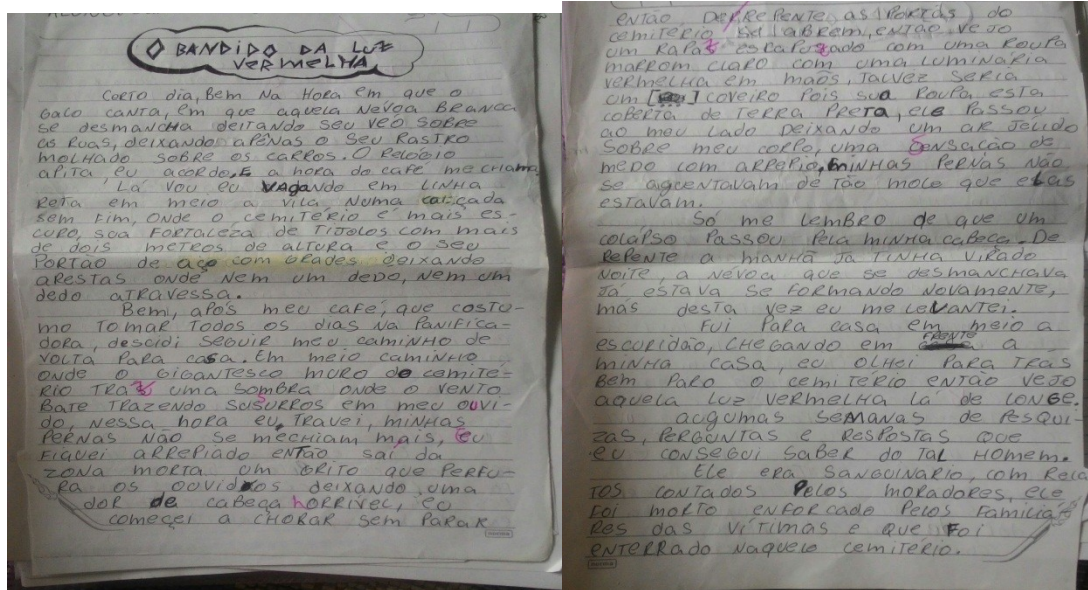 O BANDIDO DA LUZ
VERMELHA
CERTO dia, BEM NA HORA EM QUE O
GALO CANTA, EM QUE AQUELA NÉVOA BRANCA
SE DESMANCHA DEITANDO SEU VÉO SOBRE
AS RUAS, DEIXANDO APENAS O SEU RASTRO
MOLHADO SOBRE OS CARROS. O RELÓGIO
APITA, EU ACORDO, E A HORA DO CAFÉ ME CHAMA
LÁ VOU EU VAGANDO EM LINHA
RETA EM MEIO A VILA, NUMA CALÇADA
SEM FIM, ONDE O CEMITÉRIO É MAIS ES-
CURO, SUA FORTALEZA DE TIJOLOS COM MAIS
DE DOIS METROS DE ALTURA E O SEU
PORTÃO DE AÇO COM GRADES DEIXANDO
ARESTAS ONDE NEM UM DEDO, NEM UM
DEDO ATRAVESSA.
BEM, APÓS MEU CAFÉ, QUE COSTU-
MO TOMAR TODOS OS DIAS NA PANIFICA-
DORA, DESCIDI SEGUIR MEU CAMINHO DE
VOLTA PARA CASA. EM MEIO CAMINHO
ONDE O GIGANTESCO MURO DO CEMITÉ-
RIO TRAZ UMA SOMBRA ONDE O VENTO
BATE TRAZENDO SUSURROS EM MEU OUVI-
DO, NESSA HORA EU TRAVEI, MINHAS
PERNAS NÃO SE MECHIAM MAIS, EU
FIQUEI ARREPIADO ENTÃO SAI DA
ZONA MORTA UM GRITO QUE PERFU-
RA OS OUVIDOS DEIXANDO UMA
DOR DE CABEÇA HORRIVEL, EU
COMEÇEI A CHORAR SEM PARAR
ENTÃO, DERREPENTE AS PORTAS DO
CEMITÉRIO SE ABREM, ENTÃO VEJO
UM RAPAZ ESCAPUZADO COM UMA ROUPA
MARROM CLARO COM UMA LUMINÁRIA
VERMELHA EM MÃOS, TALVEZ SERIA
UM COVEIRO POIS SUA ROUPA ESTA
COBERTA DE TERRA PRETA, ELE PASSOU
AO MEU LADO DEIXANDO UM AR JELIDO
SOBRE MEU CORPO, UMA SENSAÇÃO DE
MEDO COM ARREPIO, MINHAS PERNAS NÃO
SE AGUENTAVAM DE TÃO MOLE QUE ELAS
ESTAVAM.
SÓ ME LEMBRO DE QUE UM
COLAPSO PASSOU PELA MINHA CABEÇA. DE
REPENTE A MANHÃ JÁ TINHA VIRADO
NOITE, A NÉVOA QUE SE DESMANCHAVA
JÁ ESTAVA SE FORMANDO NOVAMENTE,
MAS DESTA VEZ EU ME LEVANTEI.
FUI PARA CASA EM MEIO A
ESCURIDÃO, CHEGANDO EM FRENTE A
MINHA CASA, EU OLHEI PARA TRÁS
BEM PARO O CEMITÉRIO ENTÃO VEJO
AQUELA LUZ VERMELHA LÁ DE LONGE.
AUGUMAS SEMANAS DE PESQUI-
ZAS, PERGUNTAS E RESPOSTAS QUE
EU CONSEGUI SABER DO TAL HOMEM.
ELE ERA SANGUINÁRIO, COM RELA
TOS CONTADOS PELOS MORADORES, ELE
FOI MORTO ENFORCADO PELOS FAMILIA-
RES DAS VÍTIMAS E QUE FOI
ENTERRADO NAQUELO CEMITÉRIO.